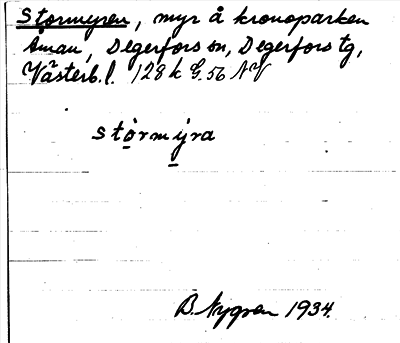 Stormyren, myr å kronoparken
Åman, Degerfors sn, Degerfors tg,
Västerb. l. 128 k G. 56 AV
stòrmýra
B. Nygren 1934.